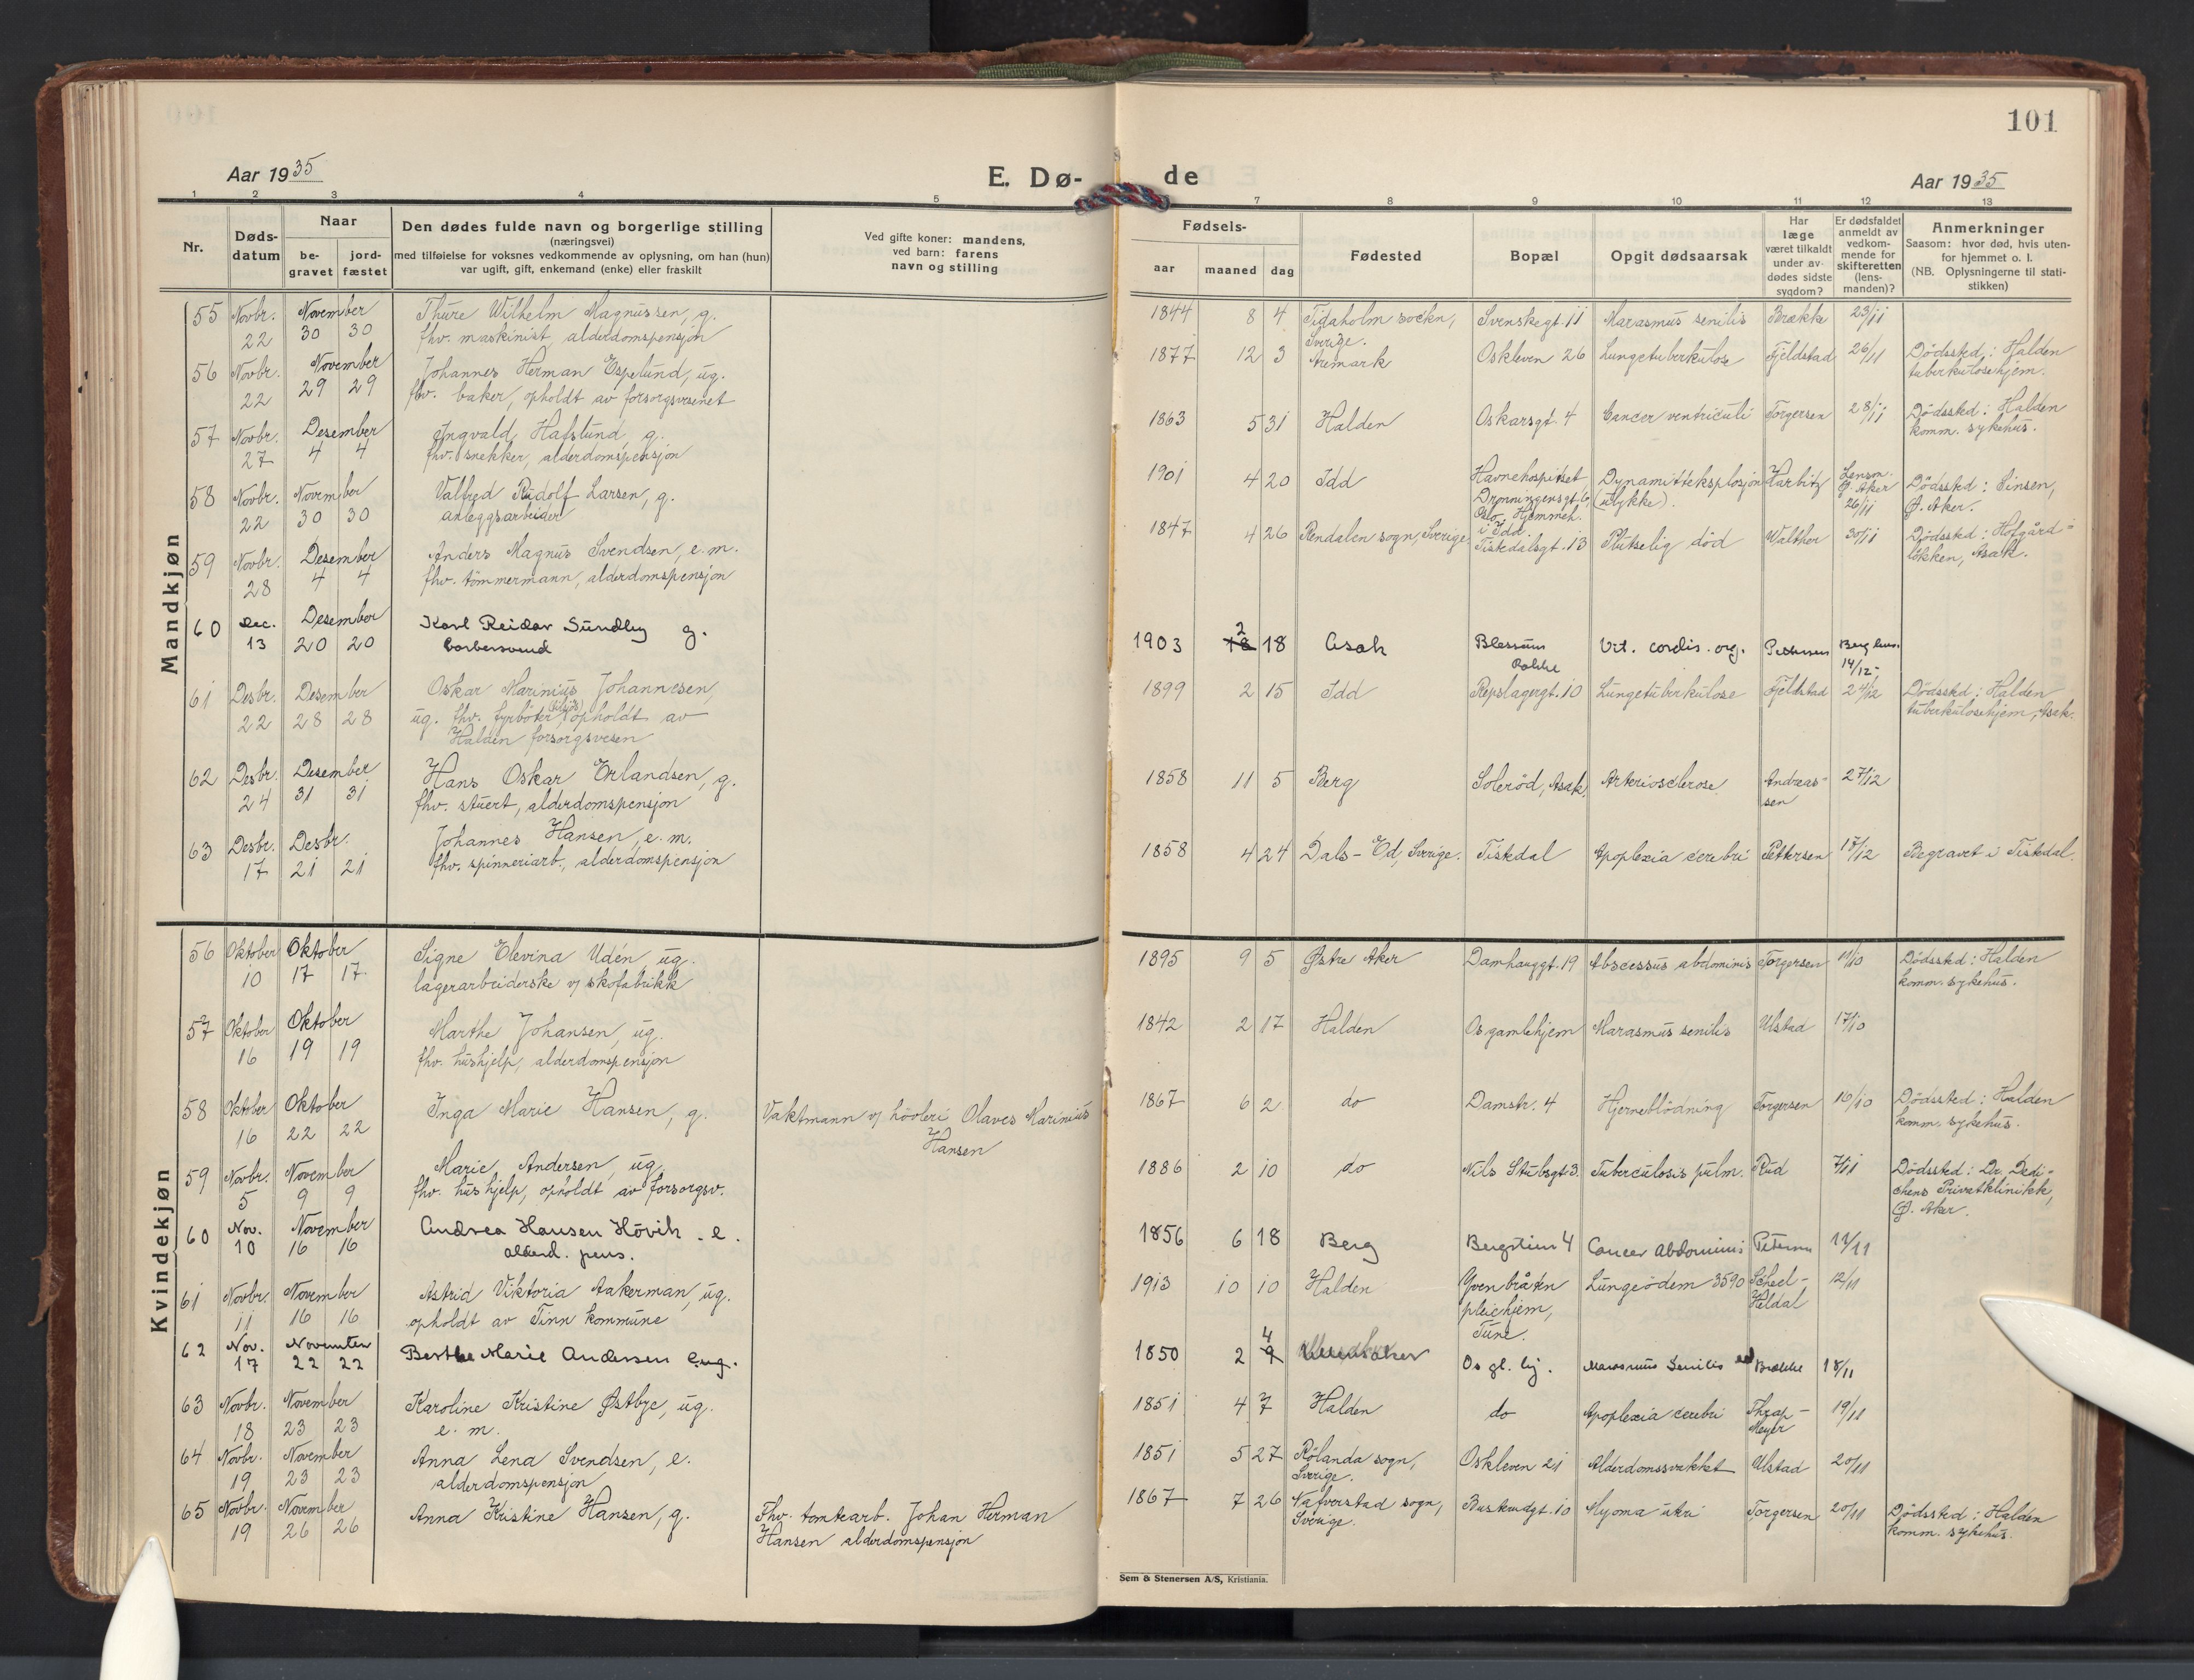 101
Aar 1935
E. Dø-
de
Aar 1935
1 2 3 4 5 7 8 9 10 11 12 13
Nr.
Døds-
datum
Naar
be-
gravet
jord-
fæstet
Den dødes fulde navn og borgerlige stilling
(næringsvei)
med tilføielse for voksnes vedkommende av oplysning, om han (hun)
var ugift, gift, enkemand (enke) eller fraskilt
Ved gifte koner: mandens,
ved barn: farens
navn og stilling
Fødsels-
aar maaned dag
Fødested
Bopæl
Opgit dødsaarsak
Har
læge
været tilkaldt
under av-
dødes sidste
sygdom?
Er dødsfaldet
anmeldt av
vedkom-
mende for
skifteretten
(lens-
manden)?
Anmerkninger
Saasom: hvor død, hvis uten-
for hjemmet o. l.
(NB. Oplysningerne til stati-
stikken)
Mandkjøn
55 Novbr. November Thure Wilhelm Magnussen, g. 1844 8 4 Tidaholm sockn, Svenskegt. 11 Marasmus senilis Brække 23/11
22 30 30 fhv. maskinist, alderdomspensjon Sverige.
56 Novbr. November Johannes Herman Espelund, ug. 1877 12 3 Aremark Oskleven 26 Lungetuberkulose Fjeldstad 26/11 Dödssted: Halden
22 29 29 fhv. baker, opholdt av forsorgsvesenet tuberkulosehjem.
57 Novbr. Desember Ingvald Hafslund, g. 1863 5 31 Halden Oskarsgt. 4 Cancer ventriculi Torgersen 28/11 Dödssted: Halden
27 4 4 fhv. snekker, alderdomspensjon komm. sykehus.
58 Novbr. November Valbgd Rudolf Larsen, g. 1901 4 20 Idd Havnehospitset Dynamitteksplosjon Harbitz Lensm. Dödssted: Sinsen,
22 30 30 anleggsarbeider Dronningensgt. 6, (ulykke). Ø. Aker Ø. Aker.
Oslo, Hjemmeh. 26/11
i Idd.
59 Novbr. Desember Anders Magnus Svendsen, e.m. 1847 4 26 Rendalen sogn, Sverige Tistedalsgt. 13 Plutselig död Walther 30/11 Dödssted: Hofgård-
28 4 4 fhv. tömmermann, alderdomspensjon lökken, Asak.
60 Dec. Desember Karl Reidar Sundby g. 1903 18 2 18 Asak Blessum Vit. cordis. org. Pettersen Berg lens.
13 20 20 barbersvend Rokke 14/12
61 Desbr. Desember Oskar Marinius Johannesen, 1899 2 15 Idd Repslagergt. 10 Lungetuberkulose Fjeldstad 24/12 Dödssted: Halden
22 28 28 ug. fhv. fyrböter opholdt av tuberkulosehjem, Asak.
Halden forsorgsvesen
62 Desbr. Desember Hans Oskar Erlandsen, g. 1858 11 5 Berg Soleröd, Asak. Arteriosclerose Andreas- 27/12
24 31 31 fhv. stuert, alderdomspensjon sen
63 Desbr. Desbr. Johannes Hansen, e.m. 1858 4 24 Dals-Ed, Sverige. Tistedal Apoplexia cerebri Pettersen 17/12 Begravet i Tistedal.
17 21 21 fhv. spinneriarb., alderdomspensjon
Kvindekjøn
56 Oktober Oktober Signe Elevina Udén, ug. 1895 9 5 Østre Aker Damhauggt. 19 Abscessus abdominis Torgersen 11/10 Dödssted: Halden
10 17 17. lagerarbeiderske v/ skofabrikk komm. sykehus.
57 Oktober Oktober Marthe Johansen, ug. 1842 2 17 Halden Os gamlehjem Marasmus senilis Ulstad 17/10
16 19 19 fhv. hushjelp, alderdomspensjon
58 Oktober Oktober Inga Marie Hansen, g. Vaktmann v/ hövleri Olaves Marinius 1867 6 2 do Damstr. 4 Hjerneblödning Torgersen 16/10 Dödssted: Halden
16 22 22 Hansen komm. sykehus.
59 Novbr. November Marie Andersen, ug. 1886 2 10 do Nils Stubsgt 3. Tuberculosis pulm. Rud 7/11 Dödssted: Dr. Dedi-
5 9 9 fhv. hushjelp, opholdt av forsorgsv. chens Privatklinikk,
Ø. Aker.
60 Nov. November Andrea Hansen Hövik. e. 1856 6 18 Berg Bergstien 4 Cancer Abdominis 11/11
10 16 16 alderd. pens.
61 Novbr. November Astrid Viktoria Aakerman, ug. 1913 10 10 Halden Yvenbråten Lungeödem 3590 Scheel- 12/11
11 16 16 opholdt av Tinn kommune pleiehjem, Heldal
Tune.
62 Nov. November Berthe Marie Andersen ug. 1850 2 9 4 Os gl. hj. Marasmus Senilis Brække 18/11
17 22 22
63 Novbr. November Karoline Kristine Østbye, ug. 1851 4 7 Halden do Apoplexia cerebri Thrap- 19/11
18 23 23 e. m. Meyer
64 Novbr. November Anna Lena Svendsen, e. 1851 5 27 Rölanda sogn, Oskleven 21 Alderdomssvakhet Ulstad 20/11
19 23 23 alderdomspensjon Sverige.
65 Novbr. November Anna Kristine Hansen, g. Fhv. tomtearb. Johan Herman 1867 7 26 Nafverstad sogn, Buskrudgt. 10 Myoma uteri Torgersen 20/11 Dödssted: Halden
19 26 26 Hansen alderdomspensjon Sverige. komm. sykehus.
Sem & Stenersen A/S, Kristiania.